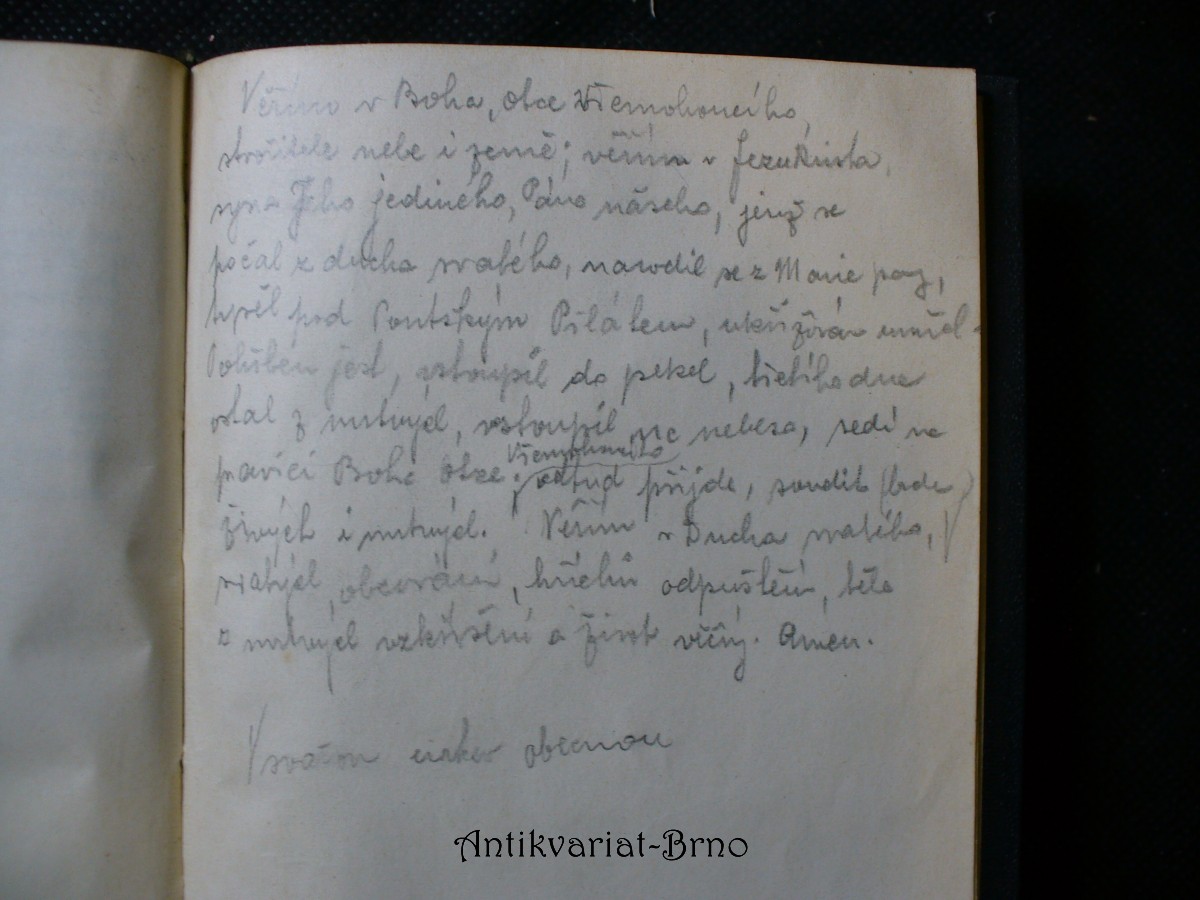 Věřím v Boha, otce Všemohoucího,
stvořitele nebe i země; věřím v Jezukrista,
syna Jeho jediného, Pána našeho, jenž se
počal z ducha svatého, narodil se z Marie pany,
trpěl pod Pontským Pilátem, ukřižován umřel
Pohřben jest, vstoupil do pekel, třetího dne
vstal z mrtvých, vstoupil na nebesa, sedí na
Všemohoucího
pravici Boha Otce; odtud přijde, soudit (bude)
živých i mrtvých. Věřím v Ducha svatého,
svatých obcování, hříchů odpuštění, těla
z mrtvých vzkříšení a život věčný. Amen.
svatou církev obecnou
Antikvariat-Brno